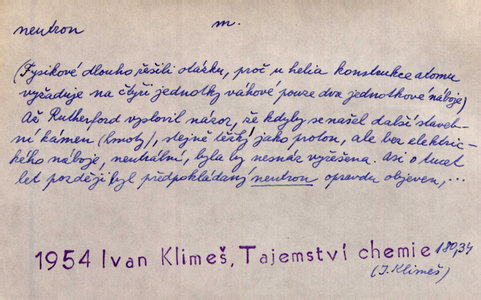 neutron m.
(Fysikové dlouho řešili otázku, proč u helia konstrukce atomu
vyžaduje na čtyři jednotky váhové pouze dva jednotkové náboje)
Až Rutherford vyslovil názor, že kdyby se našel další staveb-
ní kámen (hmoty), stejně těžký jako proton, ale bez elektric-
kého náboje, neutrální, byla by nesnáz vyřešena. Asi o tucet
let později byl předpokládaný neutron opravdu objeven,...
1954 Ivan Klimeš, Tajemství chemie 180,34
(I. Klimeš)